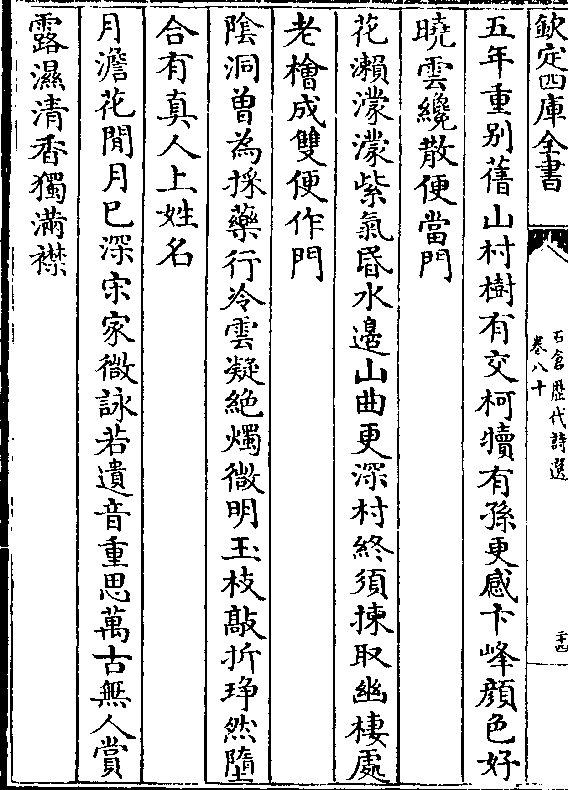 欽定四庫全書
石倉歷代詩選
卷八十
二十四
五年重别舊山村樹有交柯犢有孫更感卞峰顔色好
曉雲纔散便當門
花瀨濛濛紫氣昏水邉山曲更深村終須揀取幽棲處
老檜成雙便作門
隂洞曽為採藥行冷雲凝絶燭微明玉枝敲折琤然墮
合有真人上姓名
月澹花閒月已深宋家微詠若遺音重思萬古無人賞
露濕清香獨滿襟